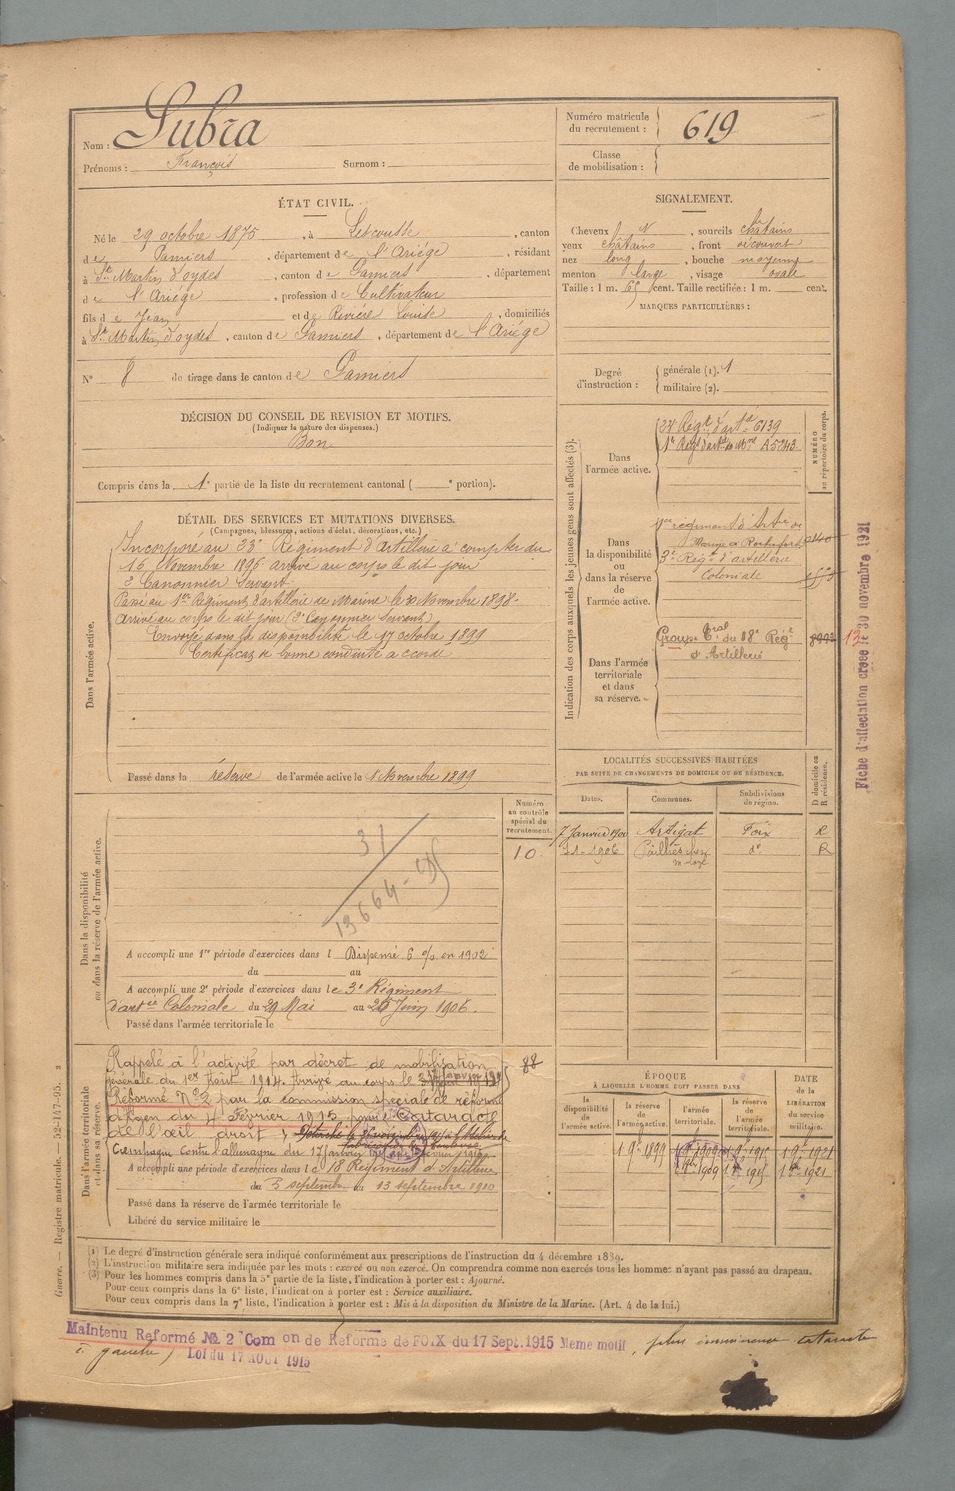 Nom : Subra
Prénoms : François Surnom :
Numéro matricule du recrutement : 619
Classe de mobilisation :
ÉTAT CIVIL.
Né le 29 octobre 1875, à Lescousse, canton
de Pamiers, département de l'Ariége, résidant
à St Martin d'oydes, canton de Pamiers, département
de l'Ariége, profession de Cultivateur
fils de Jean et de Riviére Louise, domiciliés
à St Martin d'oydes, canton de Pamiers, département de l'Ariége
N° 8 de tirage dans le canton de Pamiers
SIGNALEMENT.
Cheveux N, sourcils châtains
yeux châtains, front découvert
nez long, bouche moyenne
menton large, visage ovale
Taille : 1 m. 65 cent. Taille rectifiée : 1 m. cent.
MARQUES PARTICULIÈRES :
Degré d'instruction : générale (1). 1
militaire (2).
DÉCISION DU CONSEIL DE REVISION ET MOTIFS.
(Indiquer la nature des dispenses.)
Bon
Compris dans la 1e partie de la liste du recrutement cantonal ( e portion).
DÉTAIL DES SERVICES ET MUTATIONS DIVERSES.
(Campagnes, blessures, actions d'éclat, décorations, etc.)
Dans l'armée active.
Incorporé au 23e Régiment d'artillerie à compter du
16 Novembre 1896 arrivé au corps le dit jour
2e Canonnier Servant
Passé au 1er Régiment d'artillerie de Marine le Novembre 1898
Arrivé au corps le dit jour (2e Canonnier Servant)
Envoyé dans la disponibilité le 17 octobre 1899
Certificat de bonne conduite accordé
Passé dans la réserve de l'armée active le 1 Novembre 1899
Indication des corps auxquels les jeunes gens sont affectés (3).
NUMÉRO au répertoire du corps.
Dans l'armée active.
23e Régt d'artie 6139
1er Régt d'artie de Mne A5743
Dans la disponibilité ou dans la réserve de l'armée active.
1er régiment d'Artie de
Marine à Rochefort
3e Régt d'artillerie
Coloniale
Dans l'armée territoriale et dans sa réserve.
Groupe Tral du 18e Régt
d'Artillerie
Fiche d'affectation créée le 30 novembre 1921
LOCALITÉS SUCCESSIVES HABITÉES
PAR SUITE DE CHANGEMENTS DE DOMICILE OU DE RÉSIDENCE.
Dates. Communes. Subdivisions de région. D domicile ou R résidence.
7 Janvier 1900 Artigat Foix R
1906 Pailhès do R
Numéro au contrôle spécial du recrutement.
10
Dans la disponibilité ou dans la réserve de l'armée active.
31
13664
A accompli une 1re période d'exercices dans l Dispensé 6 % en 1902
du au
A accompli une 2e période d'exercices dans le 3e Régiment
d'artie Coloniale du 29 Mai au 25 Juin 1906.
Passé dans l'armée territoriale le
Dans l'armée territoriale et dans sa réserve.
Rappelé à l'activité par décret de mobilisation
générale du 1er Août 1914. Arrivé au corps le
Réformé N° 2 par la commission spéciale de réforme
d'Agen du 4 Février 1915 pour Cataracte
de l'œil droit
Campagne Contre l'allemagne du 17 janvier
A accompli une période d'exercices dans le 18 Régiment d'Artillerie
du 3 septembre au 13 septembre 1910
Passé dans la réserve de l'armée territoriale le
Libéré du service militaire le
88
ÉPOQUE
À LAQUELLE L'HOMME DOIT PASSER DANS
la disponibilité de l'armée active. la réserve de l'armée active. l'armée territoriale. la réserve de l'armée territoriale. DATE de la LIBÉRATION du service militaire.
1 9e 1899 1 9e 1909 1 9e 1915 1 9e 1921
1909 1915 1921
Guerre. — Registre matricule. — 52-147-95. 2
(1) Le degré d'instruction générale sera indiqué conformément aux prescriptions de l'instruction du 4 décembre 1889.
(2) L'instruction militaire sera indiquée par les mots : exercé ou non exercé. On comprendra comme non exercés tous les hommes n'ayant pas passé au drapeau.
(3) Pour les hommes compris dans la 5e partie de la liste, l'indication à porter est : Ajourné.
Pour ceux compris dans la 6e liste, l'indication à porter est : Service auxiliaire.
Pour ceux compris dans la 7e liste, l'indication à porter est : Mis à la disposition du Ministre de la Marine. (Art. 4 de la loi.)
Maintenu Reformé № 2 Com on de Reforme de FOIX du 17 Sept. 1915 Meme motif, plus
à gauche) Loi du 17 AOUT 1915